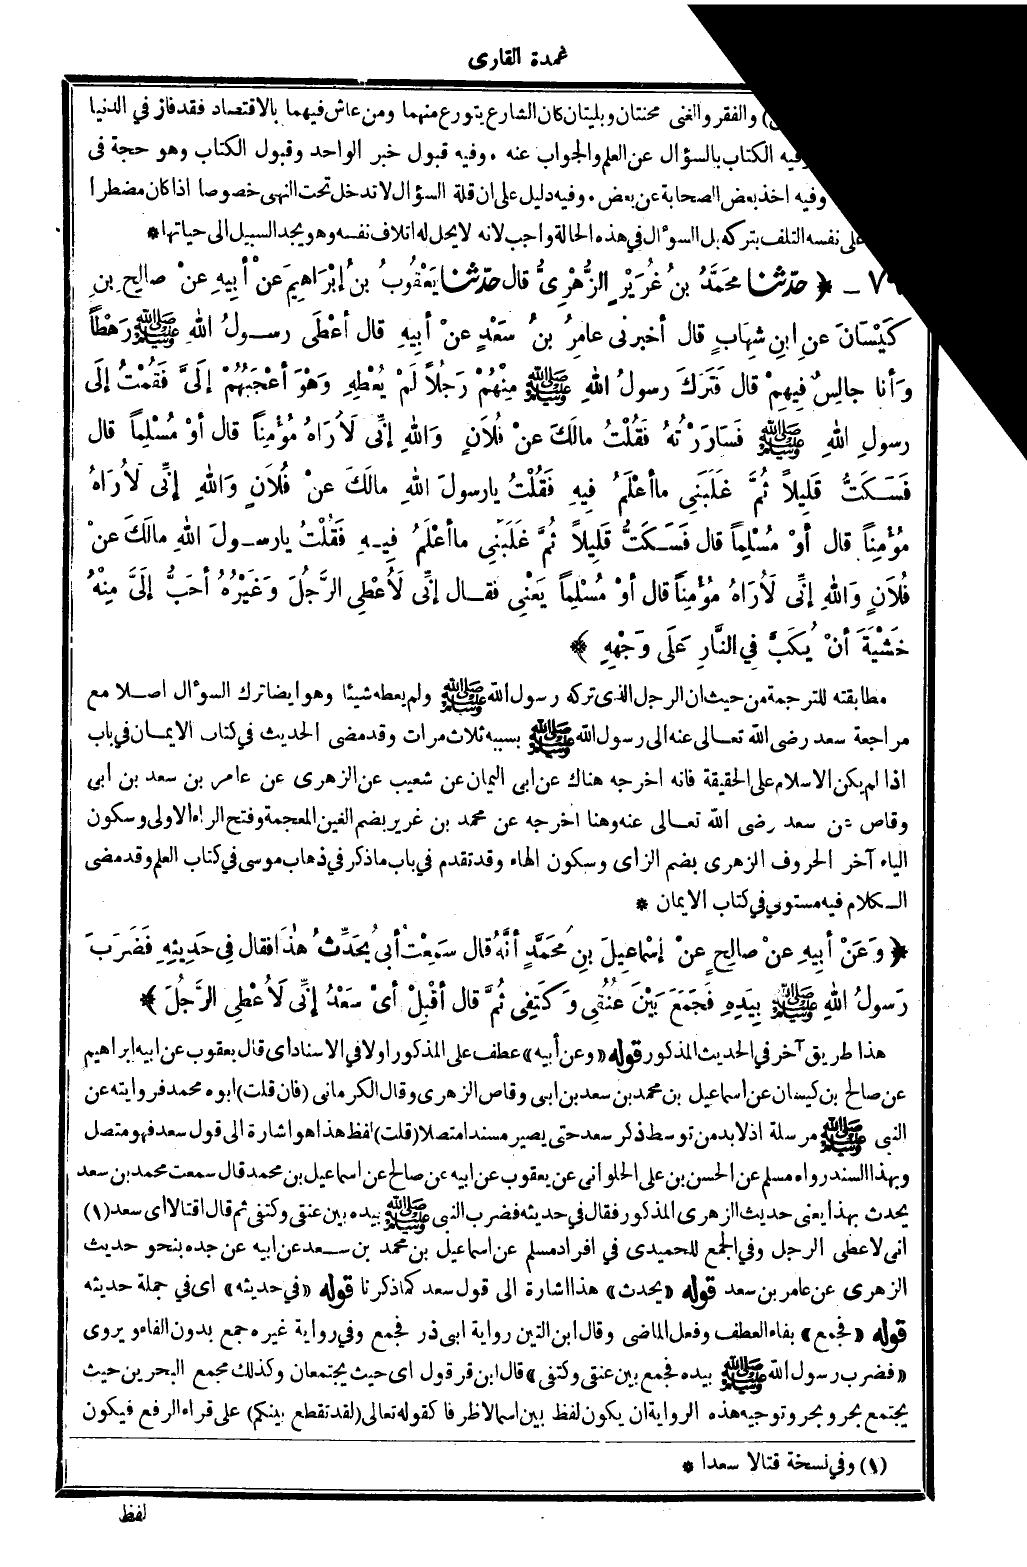 عمدة القارى
والفقر والغنى محنتان وبليتان كان الشارع يتورع منهما ومن عاش فيهما بالاقتصاد فقد فاز في الدنيا
وفيه الكتاب بالسؤال عن العلم والجواب عنه . وفيه قبول خبر الواحد وقبول الكتاب وهو حجة فى
وفيه اخذ بعض الصحابة عن بعض . وفيه دليل على ان قلة السؤال لا تدخل تحت النهى خصوصا اذا كان مضطرا
على نفسه التلف بتركه بل السؤال في هذه الحالة واجب لانه لا يحل له اتلاف نفسه وهو يجد السبيل الى حياتها *
﴿ حدّثنا محَمَّدُ بنُ غُرَيْرٍ الزُّهْرِىُّ قال حدّثنا يَعْقُوبُ بنُ إبْرَاهِيمَ عنْ أبِيهِ عنْ صالِحِ بنِ
كَيْسَانَ عنِ ابنِ شِهابٍ قال أخبرنى عامِرُ بنُ سَعْدٍ عنْ أبِيهِ قال أعْطَى رسولُ اللهِ ﷺ رَهْطاً
وَأنا جالِسٌ فِيهِمْ قال فَتَرَكَ رسولُ اللهِ ﷺ مِنْهُمْ رَجُلاً لَمْ يُعْطِهِ وَهْوَ أعْجَبُهُمْ إلَىَّ فَقُمْتُ إلَى
رسولِ اللهِ ﷺ فَسَارَرْتُهُ فَقُلْتُ مالَكَ عنْ فُلاَنٍ وَاللهِ إنِّى لَأُرَاهُ مُؤْمِناً قال أوْ مُسْلِماً قال
فَسَكَتُّ قَلِيلاً ثُمَّ غَلَبَنِى ما أعْلَمُ فِيهِ فَقُلْتُ يارسولَ اللهِ مالَكَ عنْ فُلاَنٍ وَاللهِ إنِّى لَأُرَاهُ
مُؤْمِناً قال أوْ مُسْلِماً قال فَسَكَتُّ قَلِيلاً ثُمَّ غَلَبَنِى ما أعْلَمُ فِيهِ فَقُلْتُ يارسولَ اللهِ مالَكَ عنْ
فُلاَنٍ وَاللهِ إنِّى لَأُرَاهُ مُؤْمِناً قال أوْ مُسْلِماً يَعْنِى فقال إنِّى لَأُعْطِى الرَّجُلَ وَغَيْرُهُ أحَبُّ إلَىَّ مِنْهُ
خَشْيَةَ أنْ يُكَبَّ فِي النَّارِ عَلَى وَجْهِهِ ﴾
مطابقته للترجمة من حيث ان الرجل الذى تركه رسول الله ﷺ ولم يعطه شيئا وهو ايضا ترك السؤال اصلا مع
مراجعة سعد رضى الله تعالى عنه الى رسول الله ﷺ بسببه ثلاث مرات وقد مضى الحديث في كتاب الايمان في باب
اذا لم يكن الاسلام على الحقيقة فانه اخرجه هناك عن ابى اليمان عن شعيب عن الزهرى عن عامر بن سعد بن أبى
وقاص عن سعد رضى الله تعالى عنه وهنا اخرجه عن محمد بن غرير بضم الغين المعجمة وفتح الراء الاولى وسكون
الياء آخر الحروف الزهرى بضم الزاى وسكون الهاء وقد تقدم في باب ما ذكر في ذهاب موسى في كتاب العلم وقد مضى
الكلام فيه مستوفى في كتاب الايمان *
﴿ وَعَنْ أبِيهِ عنْ صالِحٍ عنْ إسْماعِيلَ بنِ مُحَمَّدٍ أنَّهُ قال سَمِعْتُ أبِى يُحَدِّثُ هٰذا فقال فِي حَدِيثِهِ فَضَرَبَ
رَسولُ اللهِ ﷺ بِيَدِهِ فَجَمَعَ بَيْنَ عُنُقِى وَكَتِفِى ثُمَّ قال أقْبِلْ أىْ سَعْدُ إنِّى لَأُعْطِى الرَّجُلَ ﴾
هذا طريق آخر في الحديث المذكور قوله «وعن أبيه» عطف على المذكور اولا في الاسناد اى قال يعقوب عن ابيه ابراهيم
عن صالح بن كيسان عن اسماعيل بن محمد بن سعد بن ابى وقاص الزهرى وقال الكرمانى (فان قلت) ابوه محمد فروايته عن
النبى ﷺ مرسلة اذ لابد من توسط ذكر سعد حتى يصير مسندا متصلا (قلت) لفظ هذا هو اشارة الى قول سعد فهو متصل
وبهذا السند رواه مسلم عن الحسن بن على الحلوانى عن يعقوب عن ابيه عن صالح عن اسماعيل بن محمد قال سمعت محمد بن سعد
يحدث بهذا يعنى حديث الزهرى المذكور فقال في حديثه فضرب النبى ﷺ بيده بين عنقى وكتفى ثم قال اقتالا اى سعد (١)
انى لاعطى الرجل وفي الجمع للحميدى في افراد مسلم عن اسماعيل بن محمد بن سعد عن ابيه عن جده بنحو حديث
الزهرى عن عامر بن سعد قوله «يحدث» هذا اشارة الى قول سعد كما ذكرنا قوله «في حديثه» اى في جملة حديثه
قوله «فجمع» بفاء العطف وفعل الماضى وقال ابن التين رواية ابى ذر فجمع وفي رواية غيره جمع بدون الفاء ويروى
«فضرب رسول الله ﷺ بيده فجمع بين عنقى وكتفى» قال ابن قرقول اى حيث يجتمعان وكذلك مجمع البحرين حيث
يجتمع بحر وبحر وتوجيه هذه الرواية ان يكون لفظ بين اسما لا ظرفا كقوله تعالى (لقد تقطع بينكم) على قراءة الرفع فيكون
(١) وفي نسخة قتالا سعدا *
لفظ